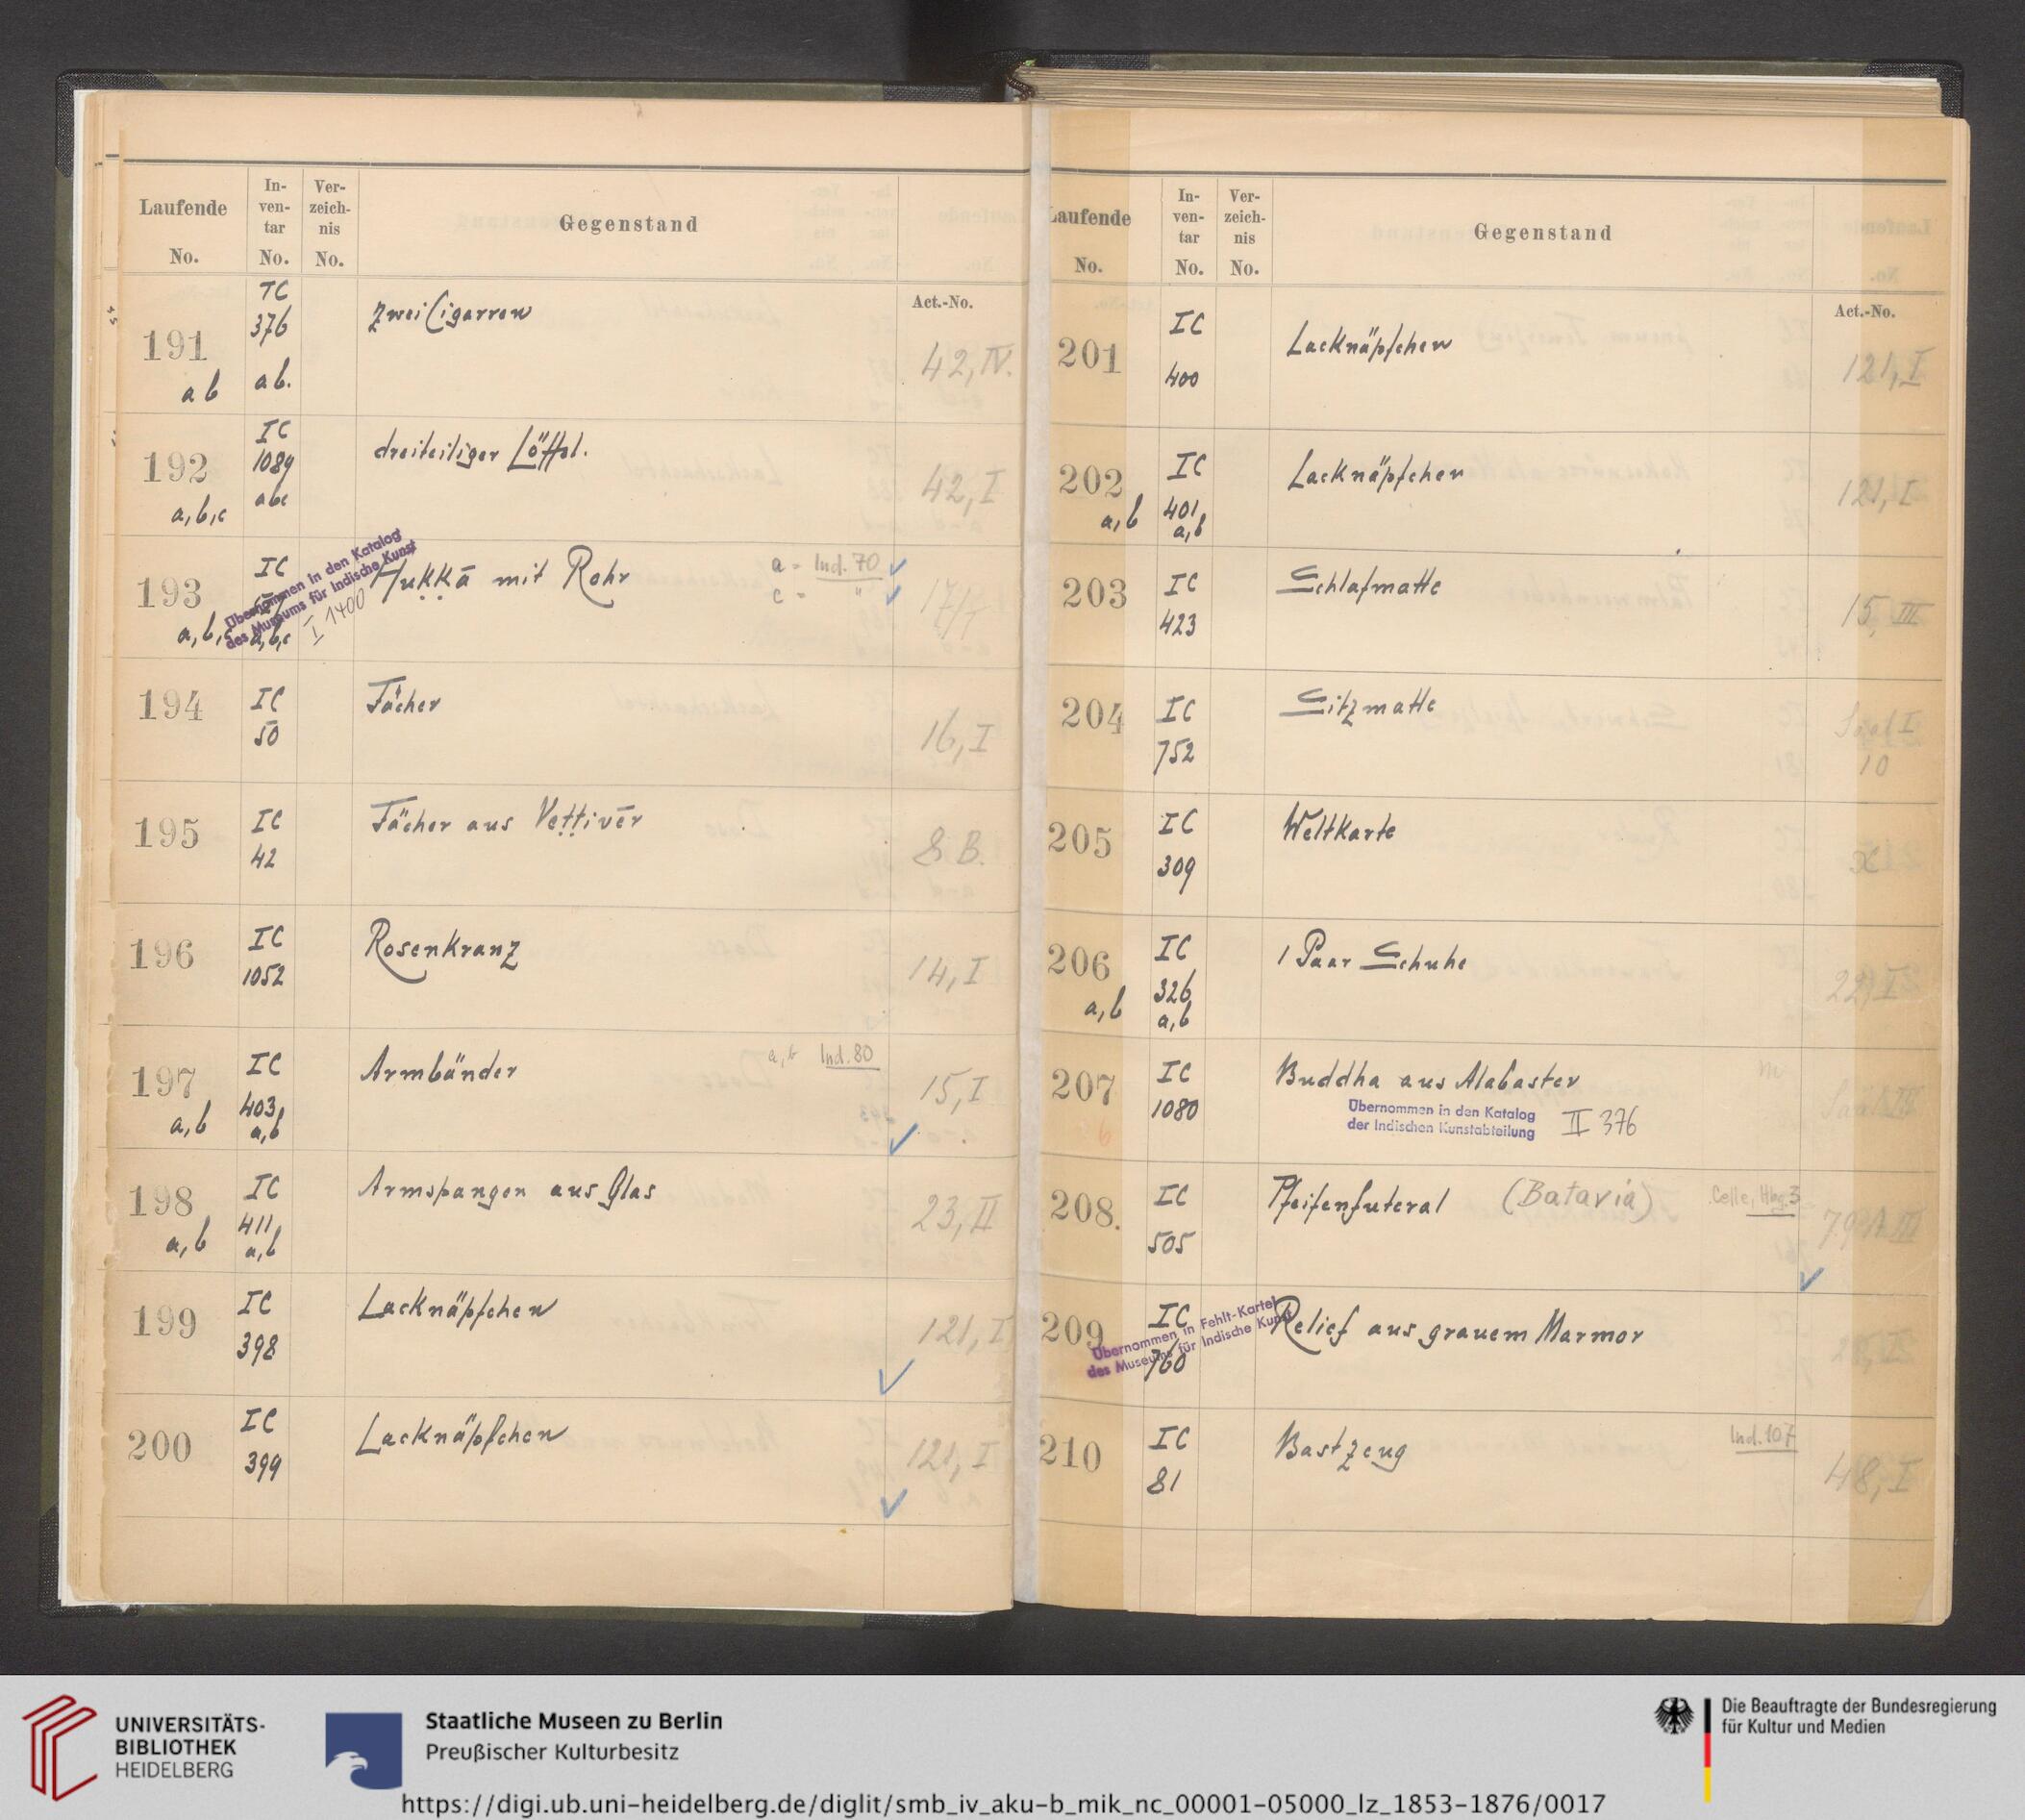 Laufende No.
In-ven-tar No.
Ver-zeich-nis No.
Gegenstand
Act.-No.
191 ab
IC 376 ab.
Zwei Cigarren
42, IV.
192 a,b,c
IC 1089 abc
dreiteiliger Löffel.
42, I
193 a,b,c
IC
a,b,c
Übernommen in den Katalog
des Museums für Indische Kunst
I 1400
Ḥuḳḳā mit Rohr
a = Ind. 70
c = "
194
IC 50
Fächer
16, I
195
IC 42
Fächer aus Veṭṭivēr
196
IC 1052
Rosenkranz
14, I
197 a,b
IC 403 a,b
Armbänder
a,b Ind. 80
15, I
198 a,b
IC 411 a,b
Armspangen aus Glas
23, II
199
IC 398
Lacknäpfchen
121, I
200
IC 399
Lacknäpfchen
121, I
Laufende No.
In-ven-tar No.
Ver-zeich-nis No.
Gegenstand
Act.-No.
201
IC 400
Lacknäpfchen
121, I
202 a,b
IC 401 a,b
Lacknäpfchen
121, I
203
IC 423
Schlafmatte
15, III
204
IC 752
Sitzmatte
Saal I
10
205
IC 309
Weltkarte
206 a,b
IC 326 a,b
1 Paar Schuhe
22, I
207
IC 1080
Buddha aus Alabaster
Übernommen in den Katalog
der Indischen Kunstabteilung
II 376
208.
IC 505
Pfeifenfuteral (Batavia)
Celle, Hbg. 3
209
IC 760
Übernommen in Fehlt-Kartei
des Museums für Indische Kunst
Relief aus grauem Marmor
210
IC 81
Bastzeug
Ind. 107
48, I
UNIVERSITÄTS-
BIBLIOTHEK
HEIDELBERG
Staatliche Museen zu Berlin
Preußischer Kulturbesitz
Die Beauftragte der Bundesregierung
für Kultur und Medien
https://digi.ub.uni-heidelberg.de/diglit/smb_iv_aku-b_mik_nc_00001-05000_lz_1853-1876/0017